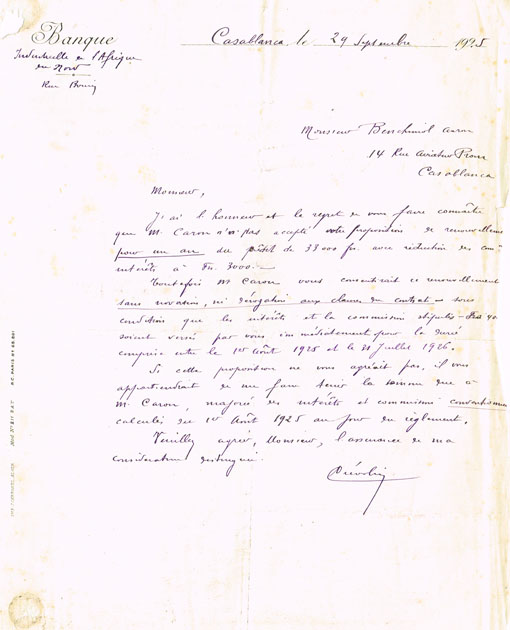 Banque
Industrielle de l'Afrique
du Nord
Rue
Casablanca, le 29 Septembre 1925
Monsieur Benchimol Aaron
14 Rue Aviateur Prom
Casablanca
Monsieur,
J'ai l'honneur et le regret de vous faire connaître
que M. Caron n'a pas accepté votre proposition de renouvellement
pour un an du prêt de 33000 frs avec réduction des
intérêts à Frs. 3000.-
Toutefois M. Caron vous consentirait ce renouvellement
sans novation, ni dérogation aux clauses du contrat - sous
condition que les intérêts et la commission stipulés -
soient versés par vous immédiatement pour la durée
comprise entre le 1er Août 1925 et le 31 Juillet 1926.
Si cette proposition ne vous agréait pas, il vous
appartiendrait de me faire tenir la somme due à
M. Caron, majorée des intérêts et commissions
calculés du 1er Août 1925 au jour du règlement.
Veuillez agréer, Monsieur, l'assurance de ma
considération distinguée.